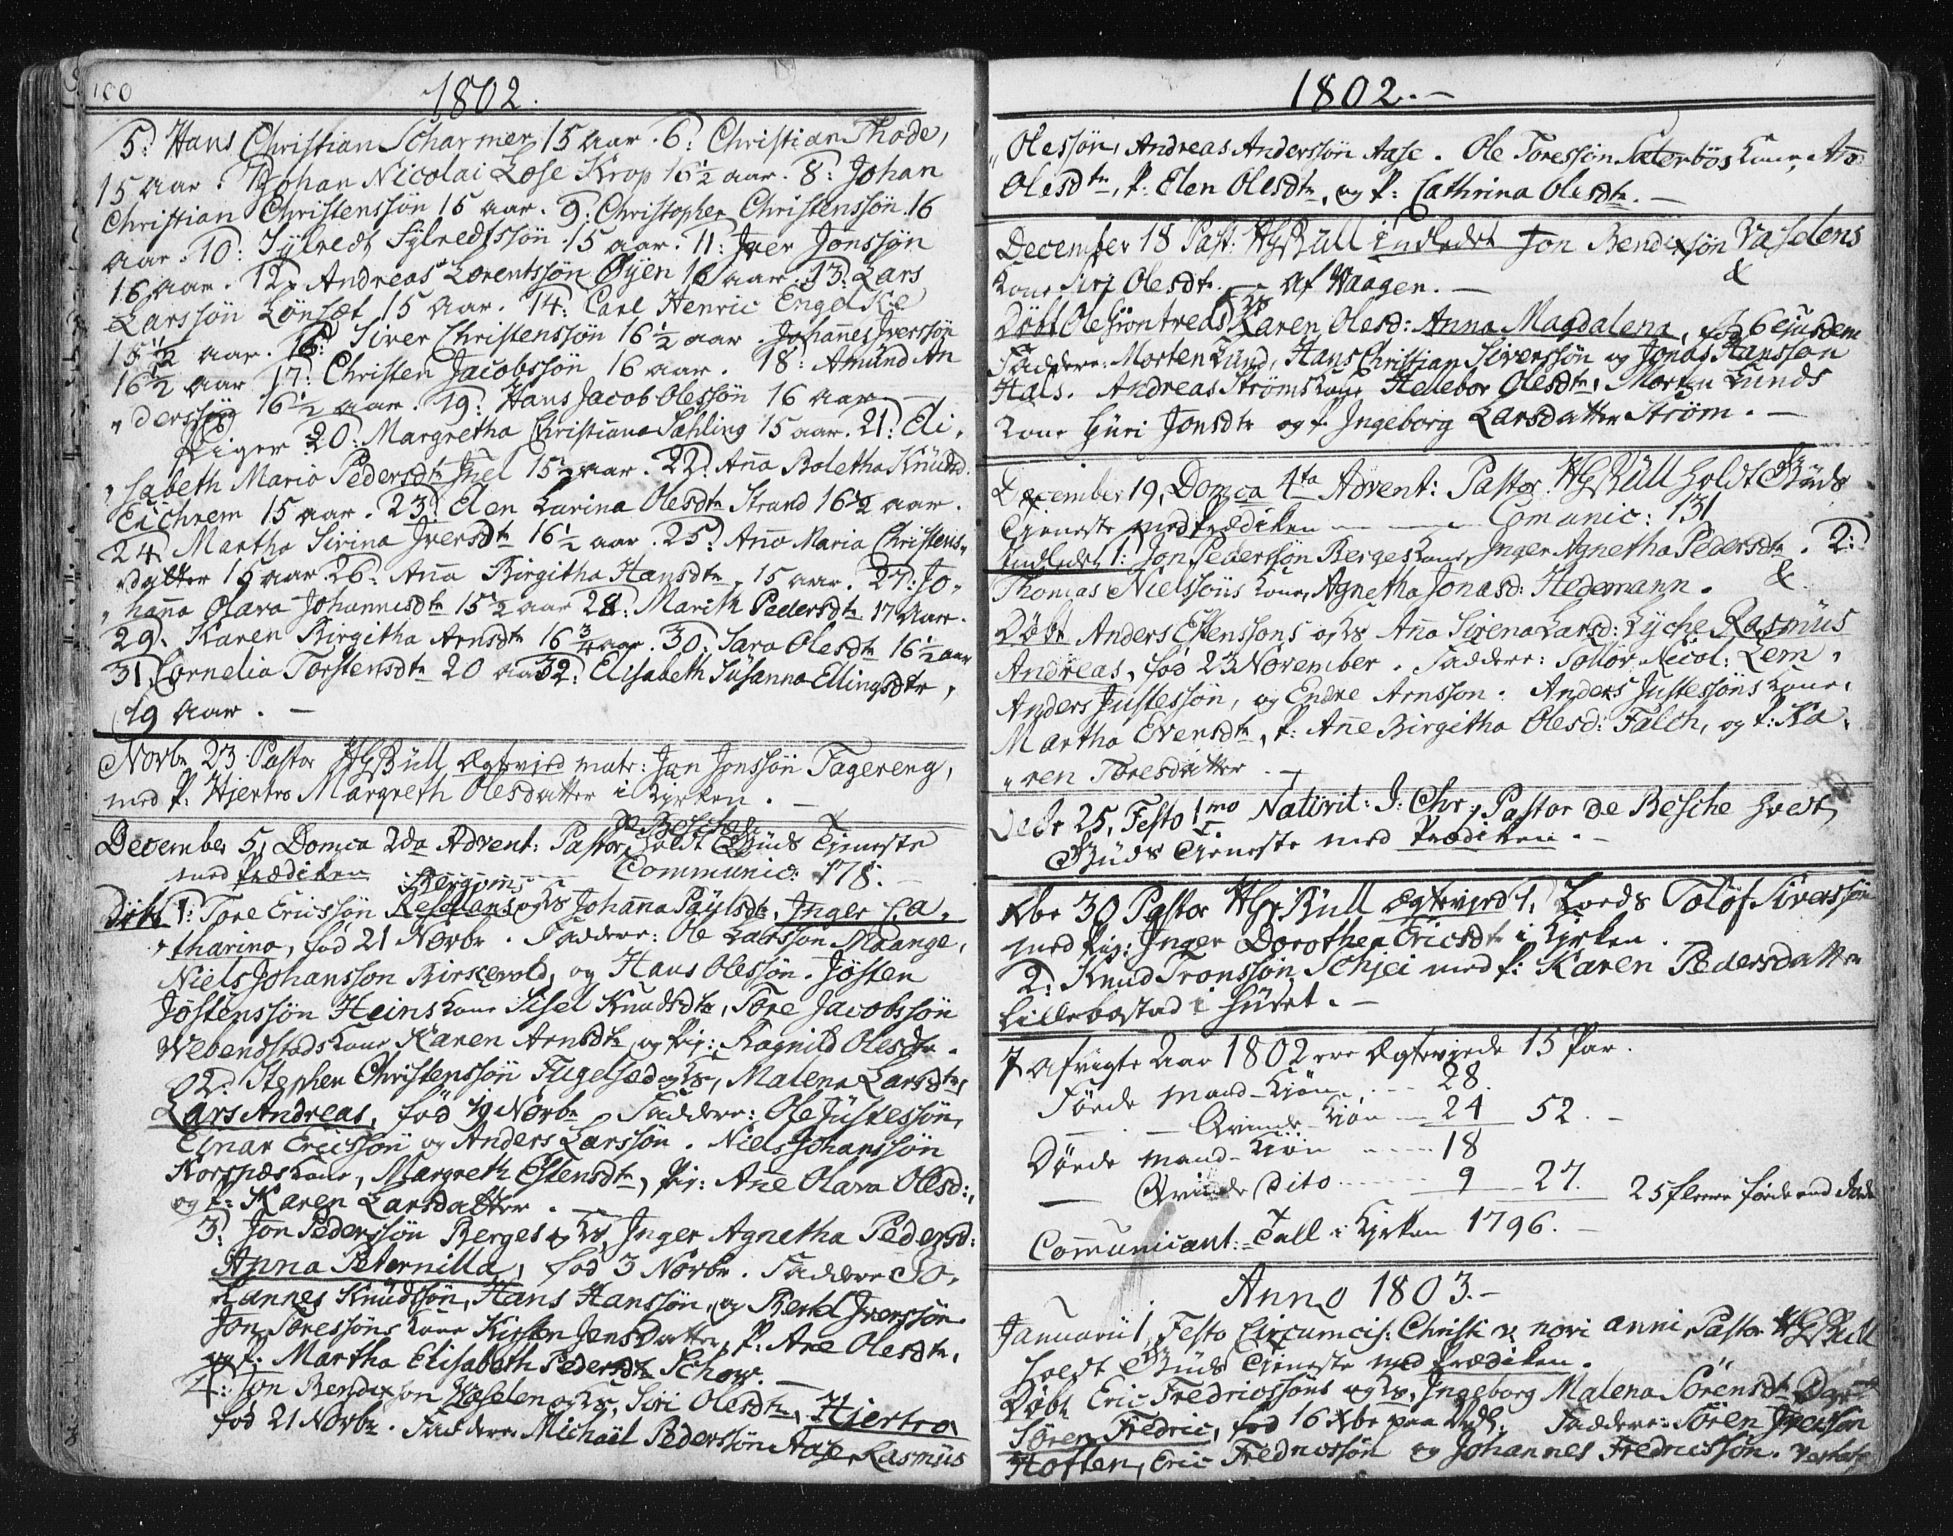 100
1802.
5. Hans Christian Scharmer 15 aar. 6: Christian Thode,
15 aar. 7. Johan Nicolai Lose Krop 16½ aar. 8: Johan
Christian Christenssøn 15 aar. 9. Christopher Christenssøn 16
aar. 10: Sylvedt Sylvedtssøn 15 aar. 11: Iver Jonssøn
16 aar. 12. Andreas Lorentssøn Øyen 16 aar. 13: Lars
Larssøn Lønset 15 aar. 14: Carl Henric Engelke
15½ aar. 16: Siver Christenssøn 16½ aar. Johannes Iverssøn
16½ aar 17: Christen Jacobssøn 16 aar. 18: Amund An
„derssøn 16½ aar. 19: Hans Jacob Olessøn 16 aar. —
Piger 20: Margretha Christiana Sahling 15 aar. 21: Eli„
„sabeth Maria Pedersdtr Juel 15½ aar. 22. Anna Boletha Knudsd.
Eichrem 15 aar. 23. Elen Larina Olesdtr Strand 16½ aar.
24. Martha Sirina Iversdtr 16½ aar. 25: Anna Maria Christens„
„datter 15 aar 26: Anna Birgitha Hansdtr 15 aar. 27: Jo„
„hanna Olava Johannisdtr 15½ aar 28: Marith Pedersdtr 17 Aar.
29. Karen Birgitha Arnsdtr 16¾ aar. 30: Sara Olesdtr 16½ aar
31. Cornelia Torstensdtr 20 aar 32: Elisabeth Susanna Ellingsdtr,
19 aar. —
Novbr 23 Pastor HG Bull Ægteviede matr: Jon Jonssøn Fagereng,
med P. Hjertrø Margreth Olesdatter i Kirken. —
December 5, Domca 2da Advent: Pastor de Besche holdt Guds Tieneste
med Prædiken Communic: 178.
Døbt 1: Tore Ericssøn Bergum og Ks Johanna Paulsdt, Inger Ca„
„tharina, fød 21 Novbr. Faddere: Ole Larssøn Maange,
Niels Johanssøn Birkevold, og Hans Olessøn. Jøsten
Jøstenssøn Heins kone Sisel Knudsdtr, Tore Jacobssøn
Webenstads kone Karen Arnsdtr, og Pig: Ragnild Olesdtr.
2. Stephen Christenssøn Fugelsæd og Ks, Malena Larsdtr,
Lars Andreas, fød 19 Novbr. Faddere: Ole Justessøn,
Einar Ericssøn og Anders Larssøn. Niels Johanssøn
Korsnæs kone, Margreth Estensdtr, Pig: Ane Olava Olesd:,
og P: Karen Larsdatter. —
3: Jon Pederssøn Berges og Ks, Inger Agnetha Pedersd:
Anna Peternilla, fød 3 Novbr. Faddere Jo„
„hannes Knudssøn, Hans Hanssøn, og Bertel Iverssøn
Jon Toressøns kone Kirsten Jensdatter, P. Ane Olesdtr,
og P. Martha Elisabeth Pedersdtr Schow. —
4: Jon Bendixsøn Vaselen og Ks, Siri Olesdtr, Hjertrø
fød 21 Novbr. Faddere Michaël Pederssøn Aase, Rasmus
1802. —
„Olessøn, Andreas Anderssøn Aase. Ole Toressøn Sæterbøs kone, Ann
Olesdtr, P: Elen Olesdtr, og P: Cathrina Olesdtr. —
December 18 Past: HG Bull indledet Jon Bendixsøn Vaselens
kone Siri Olesdtr. — af Waagen. — &
Døbt Ole Grøntreds & Ks Karen Olesd: Anna Magdalena, fød 6 ejusdem
Faddere: Morten Lund, Hans Christian Siverssøn og Jonas Hanssøn
Hals. Andreas Strøms kone Hellebor Olesdtr, Morten Lunds
kone Guri Jonsdtr og P. Ingeborg Larsdatter Strøm. —
December 19, Domca 4ta Advent: Pastor HG Bull holdt Guds
Tieneste med Prædiken — — Comunic: 131
Indledet 1: Jon Pederssøn Berges kone, Inger Agnetha Pedersdtr. 2:
Thomas Nielssøns kone, Agnetha Jonasd: Hedemann. &
Døbt Anders Estenssøns og Ks Anna Sirena Larsd: Lyche Rasmus
Andreas, fød 23 November. Faddere: Toller Nicol: Lem,
Anders Justessøn, og Endre Arnssøn. Anders Justessøns kone,
Martha Evensdtr, P: Ane Birgitha Olesd: Falch, og P: Ka„
„ren Toresdatter. —
Decbr 25, Festo 1mo Nativit: J: Chr:, Pastor De Besche holdt
Guds Tieneste med Prædiken. —
Xbr 30 Pastor HG Bull Ægteviede 1, Lords Toløf Siverssøn
med Pig: Inger Dorothea Ericsdtr i Kirken.
2. Knud Tronssøn Schjei med P: Karen Pedersdatter
Lillebostad i Huset. —
I afvigte Aar 1802 ere Ægteviede 15 Par.
Føde Mand-Kiøn — 28.
— — Qvinde-Kiøn — 24 52. —
Døde Mand-Kiøn 18
— Qvinde Dito 9 27. 25 flere føde end døde
Communicant:-Tall i Kirken 1796. —
Anno 1803. —
Januarii 1, Festo Circumcis: Christi & novi anni Pastor HG Bull
holdt Guds Tieneste med Prædiken.
Døbt Eric Fredricssøns og Ks, Ingeborg Malena Sørensdtr
Søren Fredric, fød 16 Xbr paa Veds. Faddere: Søren Iverssøn
Hoften, Eric Fredricssøn og Johannes Fredricssøn.